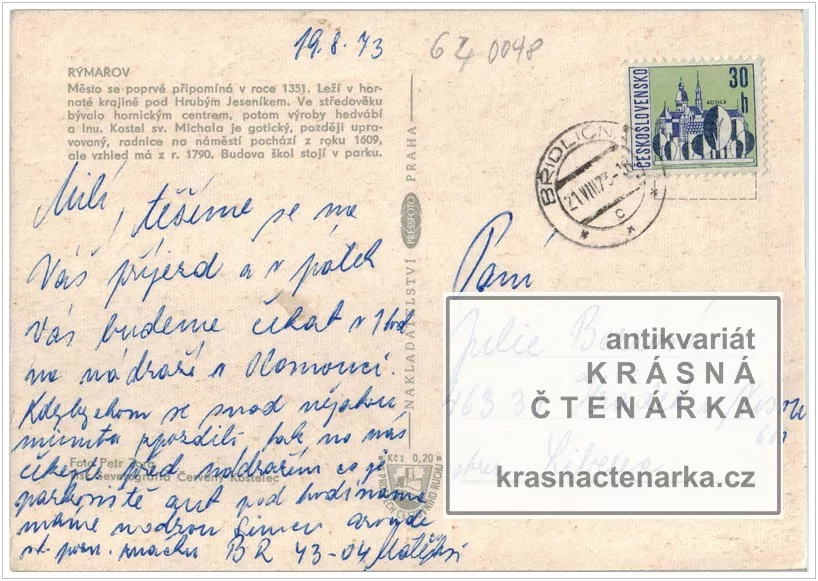 19.8.73
6Z 0098
RÝMAŘOV
Město se poprvé připomíná v roce 1351. Leží v hor-
naté krajině pod Hrubým Jeseníkem. Ve středověku
bývalo hornickým centrem, potom výroby hedvábí
a lnu. Kostel sv. Michala je gotický, později upra-
vovaný, radnice na náměstí pochází z roku 1609,
ale vzhled má z r. 1790. Budova škol stojí v parku.
Milí, těšíme se na
Váš příjezd a v pátek
Vás budeme čekat v 1 hod
na nádraží v Olomouci.
Kdybychom se snad nějakou
minutu opozdili tak na nás
čekejte před nádražím co je
parkoviště aut pod hodinama
máme modrou Simcu
st. pozn. značku BR 43-04 Matějksi
Foto Petr
Severografia Červený Kostelec
NAKLADATELSTVÍ PRESSFOTO PRAHA
Kčs 0,20
ČESKOSLOVENSKO
30 h
KOŠICE
BŘIDLIČN
21.VIII.73-1
c
Paní
Julie
463 3
okres Liberec
antikvariát
KRÁSNÁ
ČTENÁŘKA
krasnactenarka.cz